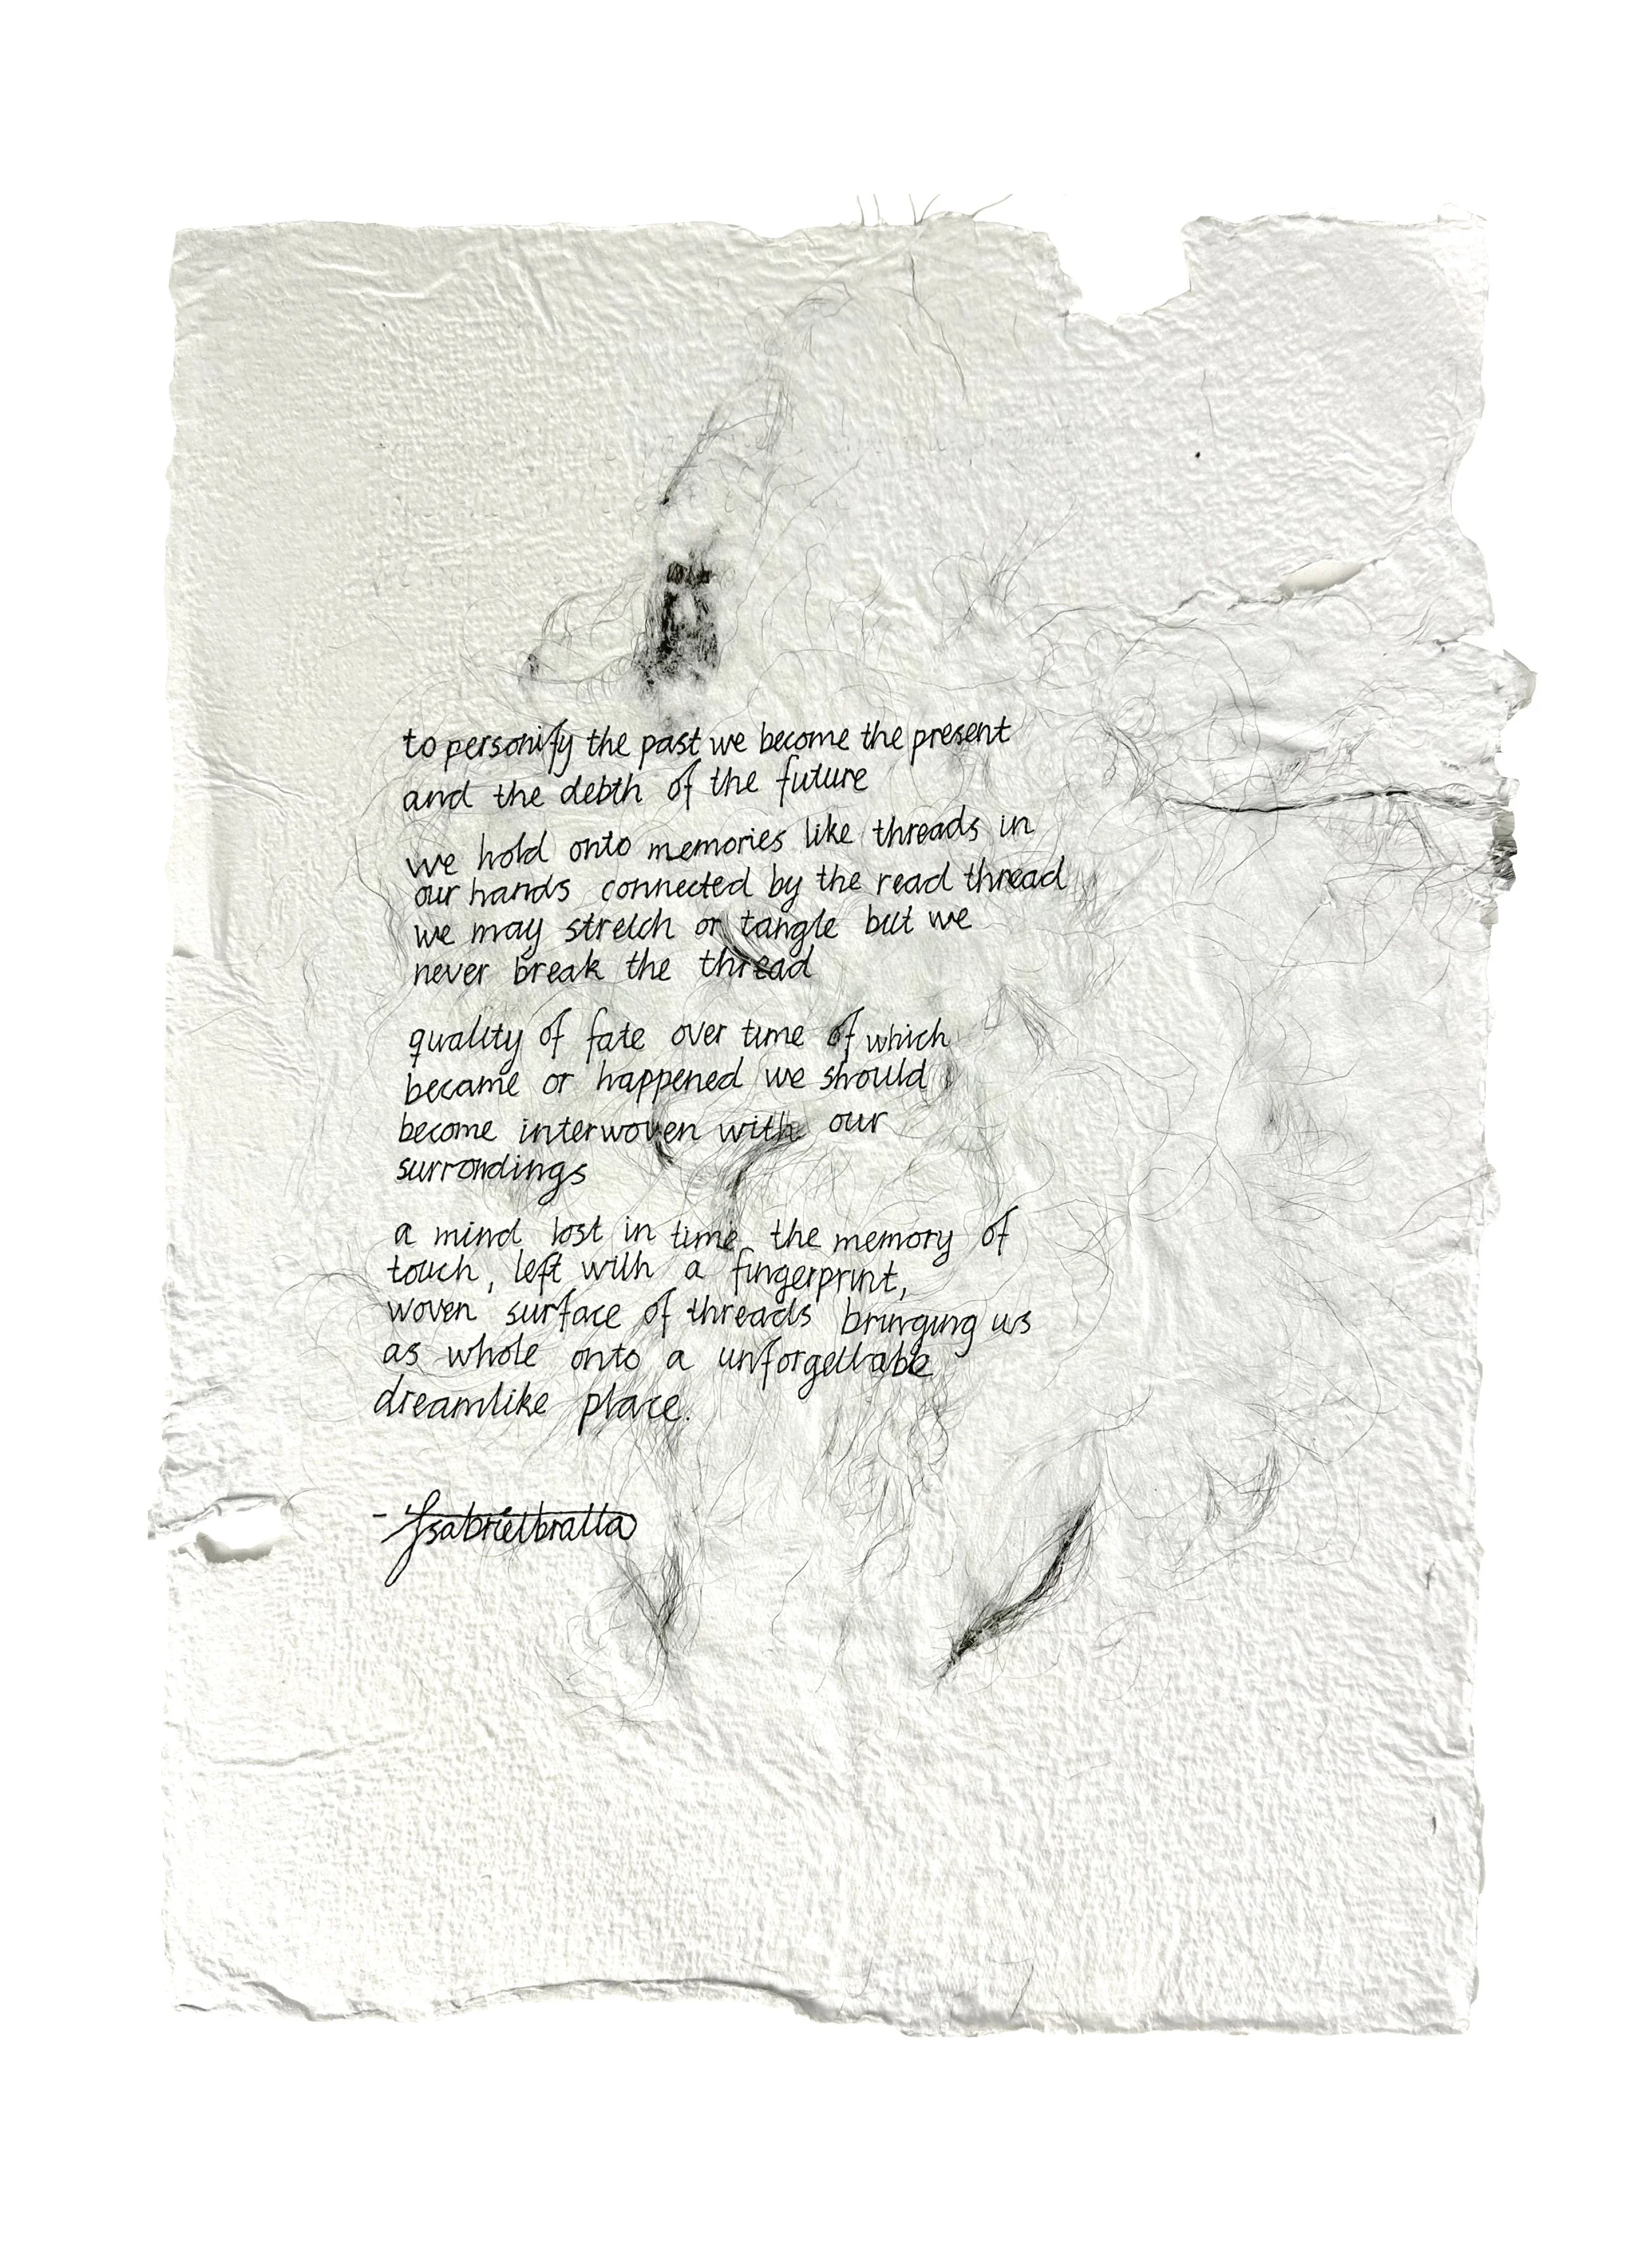 to personify the past we become the present
and the debth of the future
we hold onto memories like threads in
our hands connected by the read thread
we may stretch or tangle but we
never break the thread
quality of fate over time of which
became or happened we should
become interwoven with our
surrondings
a mind lost in time the memory of
touch, left with a fingerprint,
woven surface of threads bringing us
as whole onto a unforgettable
dreamlike place.